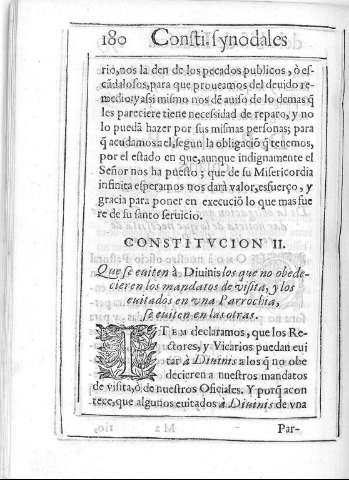 180 Consti. synodales
rio, nos la den de los pecados publicos, ò es-
cãdalosos, para que proueamos del deuido re-
medio: y assi mismo nos dẽ auiso de lo demas q̃
les pareciere tiene necessidad de reparo, y no
lo puedã hazer por sus mismas personas; para
q̃ acudamos a el, segun la obligaciõ q̃ tenemos,
por el estado en que, aunque indignamente el
Señor nos ha puesto; que de su Misericordia
infinita esperamos nos darà valor, esfuerço, y
gracia para poner en execuciõ lo que mas fue
re de su santo seruicio.
CONSTITVCION II.
Que se euiten à Diuinis los que no obede-
cieren los mandatos de visita, y los
euitados en vna Parrochia,
se euiten en las otras.
ITEM declaramos, que los Re-
ctores, y Vicarios puedan eui
tar à Diuinis a los q̃ no obe
decieren a nuestros mandatos
de visita, ò de nuestros Oficiales. Y porq̃ acon
tece, que algunos euitados à Diuinis de vna
Par-